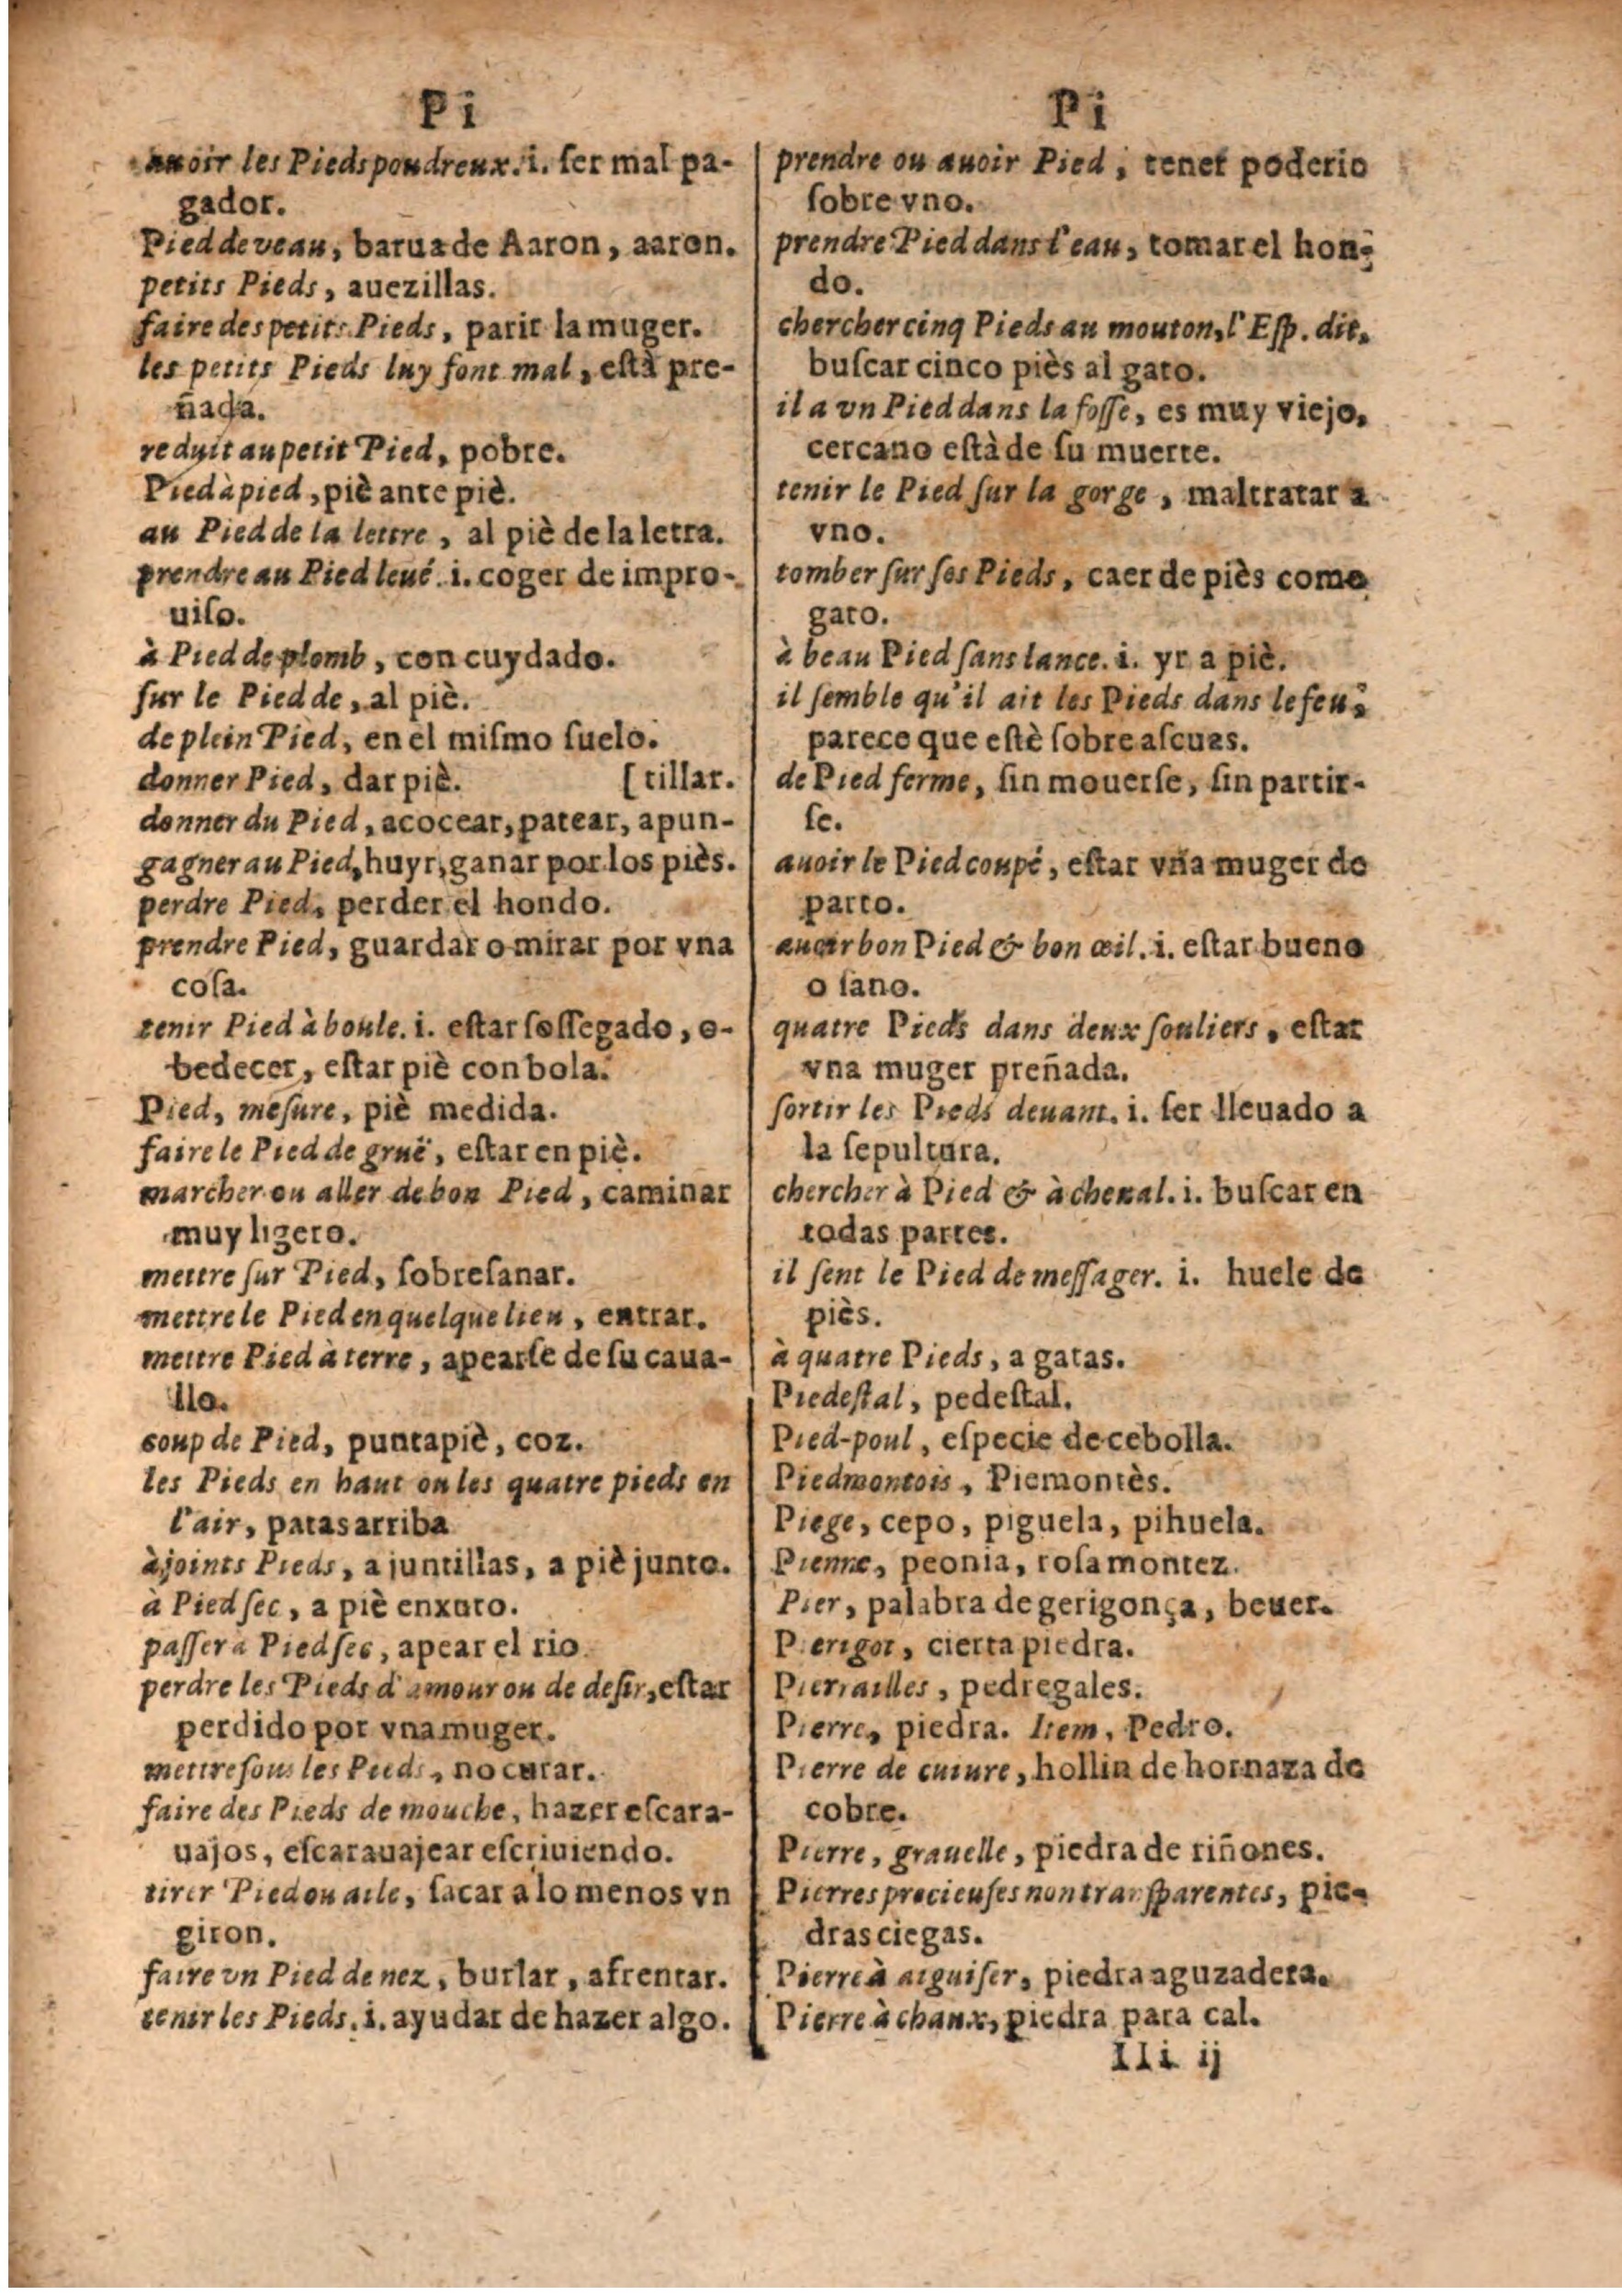 Pi
auoir les Pieds poudreux. i. ſer mal pa-
gador.
Pied de veau, barua de Aaron, aaron.
petits Pieds, auezillas.
faire des petits Pieds, parir la muger.
les petits Pieds luy font mal, eſtà pre-
ñada.
reduit au petit Pied, pobre.
Pied à pied, piè ante piè.
au Pied de la lettre, al piè de la letra.
prendre au Pied leué. i. coger de impro-
uiſo.
à Pied de plomb, con cuydado.
ſur le Pied de, al piè.
de plein Pied, en el miſmo ſuelo.
donner Pied, dar piè. [tillar.
donner du Pied, acocear, patear, apun-
gagner au Pied, huyr, ganar por los piès.
perdre Pied, perder el hondo.
prendre Pied, guardar o mirar por vna
coſa.
tenir Pied à boule. i. eſtar ſoſſegado, o-
bedecer, eſtar piè con bola.
Pied, meſure, piè medida.
faire le Pied de gruë, eſtar en piè.
marcher ou aller de bon Pied, caminar
muy ligero.
mettre ſur Pied, ſobreſanar.
mettre le Pied en quelque lieu, entrar.
mettre Pied à terre, apearſe de ſu caua-
llo.
coup de Pied, puntapiè, coz.
les Pieds en haut ou les quatre pieds en
l'air, patas arriba
à joints Pieds, a juntillas, a piè junto.
à Pied ſec, a piè enxuto.
paſſer a Pied ſec, apear el rio.
perdre les Pieds d'amour ou de deſir, eſtar
perdido por vna muger.
mettre ſous les Pieds, no curar.
faire des Pieds de mouche, hazer eſcara-
uajos, eſcarauajear eſcriuiendo.
tirer Pied ou aile, ſacar a lo menos vn
giron.
faire vn Pied de nez, burlar, afrentar.
tenir les Pieds. i. ayudar de hazer algo.
Pi
prendre ou auoir Pied, tener poderio
ſobre vno.
prendre Pied dans l'eau, tomar el hon-
do.
chercher cinq Pieds au mouton, l'Eſp. dit,
buſcar cinco piès al gato.
il a vn Pied dans la foſſe, es muy viejo,
cercano eſtà de ſu muerte.
tenir le Pied ſur la gorge, maltratar a
vno.
tomber ſur ſes Pieds, caer de piès como
gato.
à beau Pied ſans lance. i. yr a piè.
il ſemble qu'il ait les Pieds dans le feu,
parece que eſtè ſobre aſcuas.
de Pied ferme, ſin mouerſe, ſin partir-
ſe.
auoir le Pied coupé, eſtar vna muger de
parto.
auoir bon Pied & bon œil. i. eſtar bueno
o ſano.
quatre Pieds dans deux ſouliers, eſtar
vna muger preñada.
ſortir les Pieds deuant. i. ſer lleuado a
la ſepultura.
chercher à Pied & à cheual. i. buſcar en
todas partes.
il ſent le Pied de meſſager. i. huele de
piès.
à quatre Pieds, a gatas.
Piedeſtal, pedeſtal.
Pied-poul, eſpecie de cebolla.
Piedmontois, Piemontès.
Piege, cepo, piguela, pihuela.
Pienne, peonia, roſa montez.
Pier, palabra de gerigonça, beuer.
Pierigot, cierta piedra.
Pierrailles, pedregales.
Pierre, piedra. Item, Pedro.
Pierre de cuiure, hollin de hornaza de
cobre.
Pierre, grauelle, piedra de riñones.
Pierres precieuſes non tranſparentes, pie-
dras ciegas.
Pierre à aiguiſer, piedra aguzadera.
Pierre à chaux, piedra para cal.
IIi ij